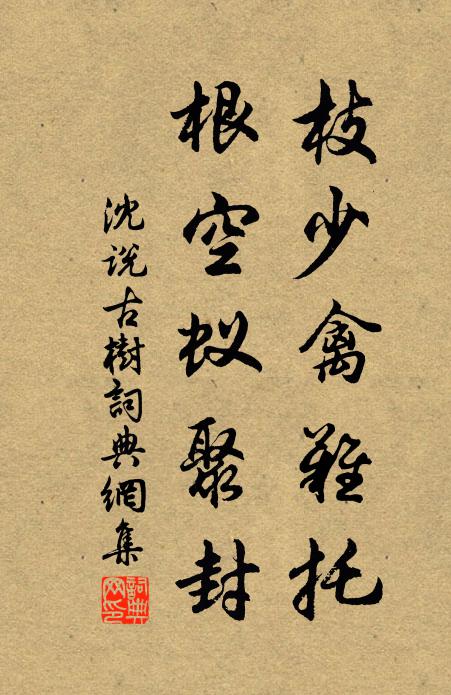 枝少禽難托
根空蚁聚封
沈说古樹詞典網集
詞典網印